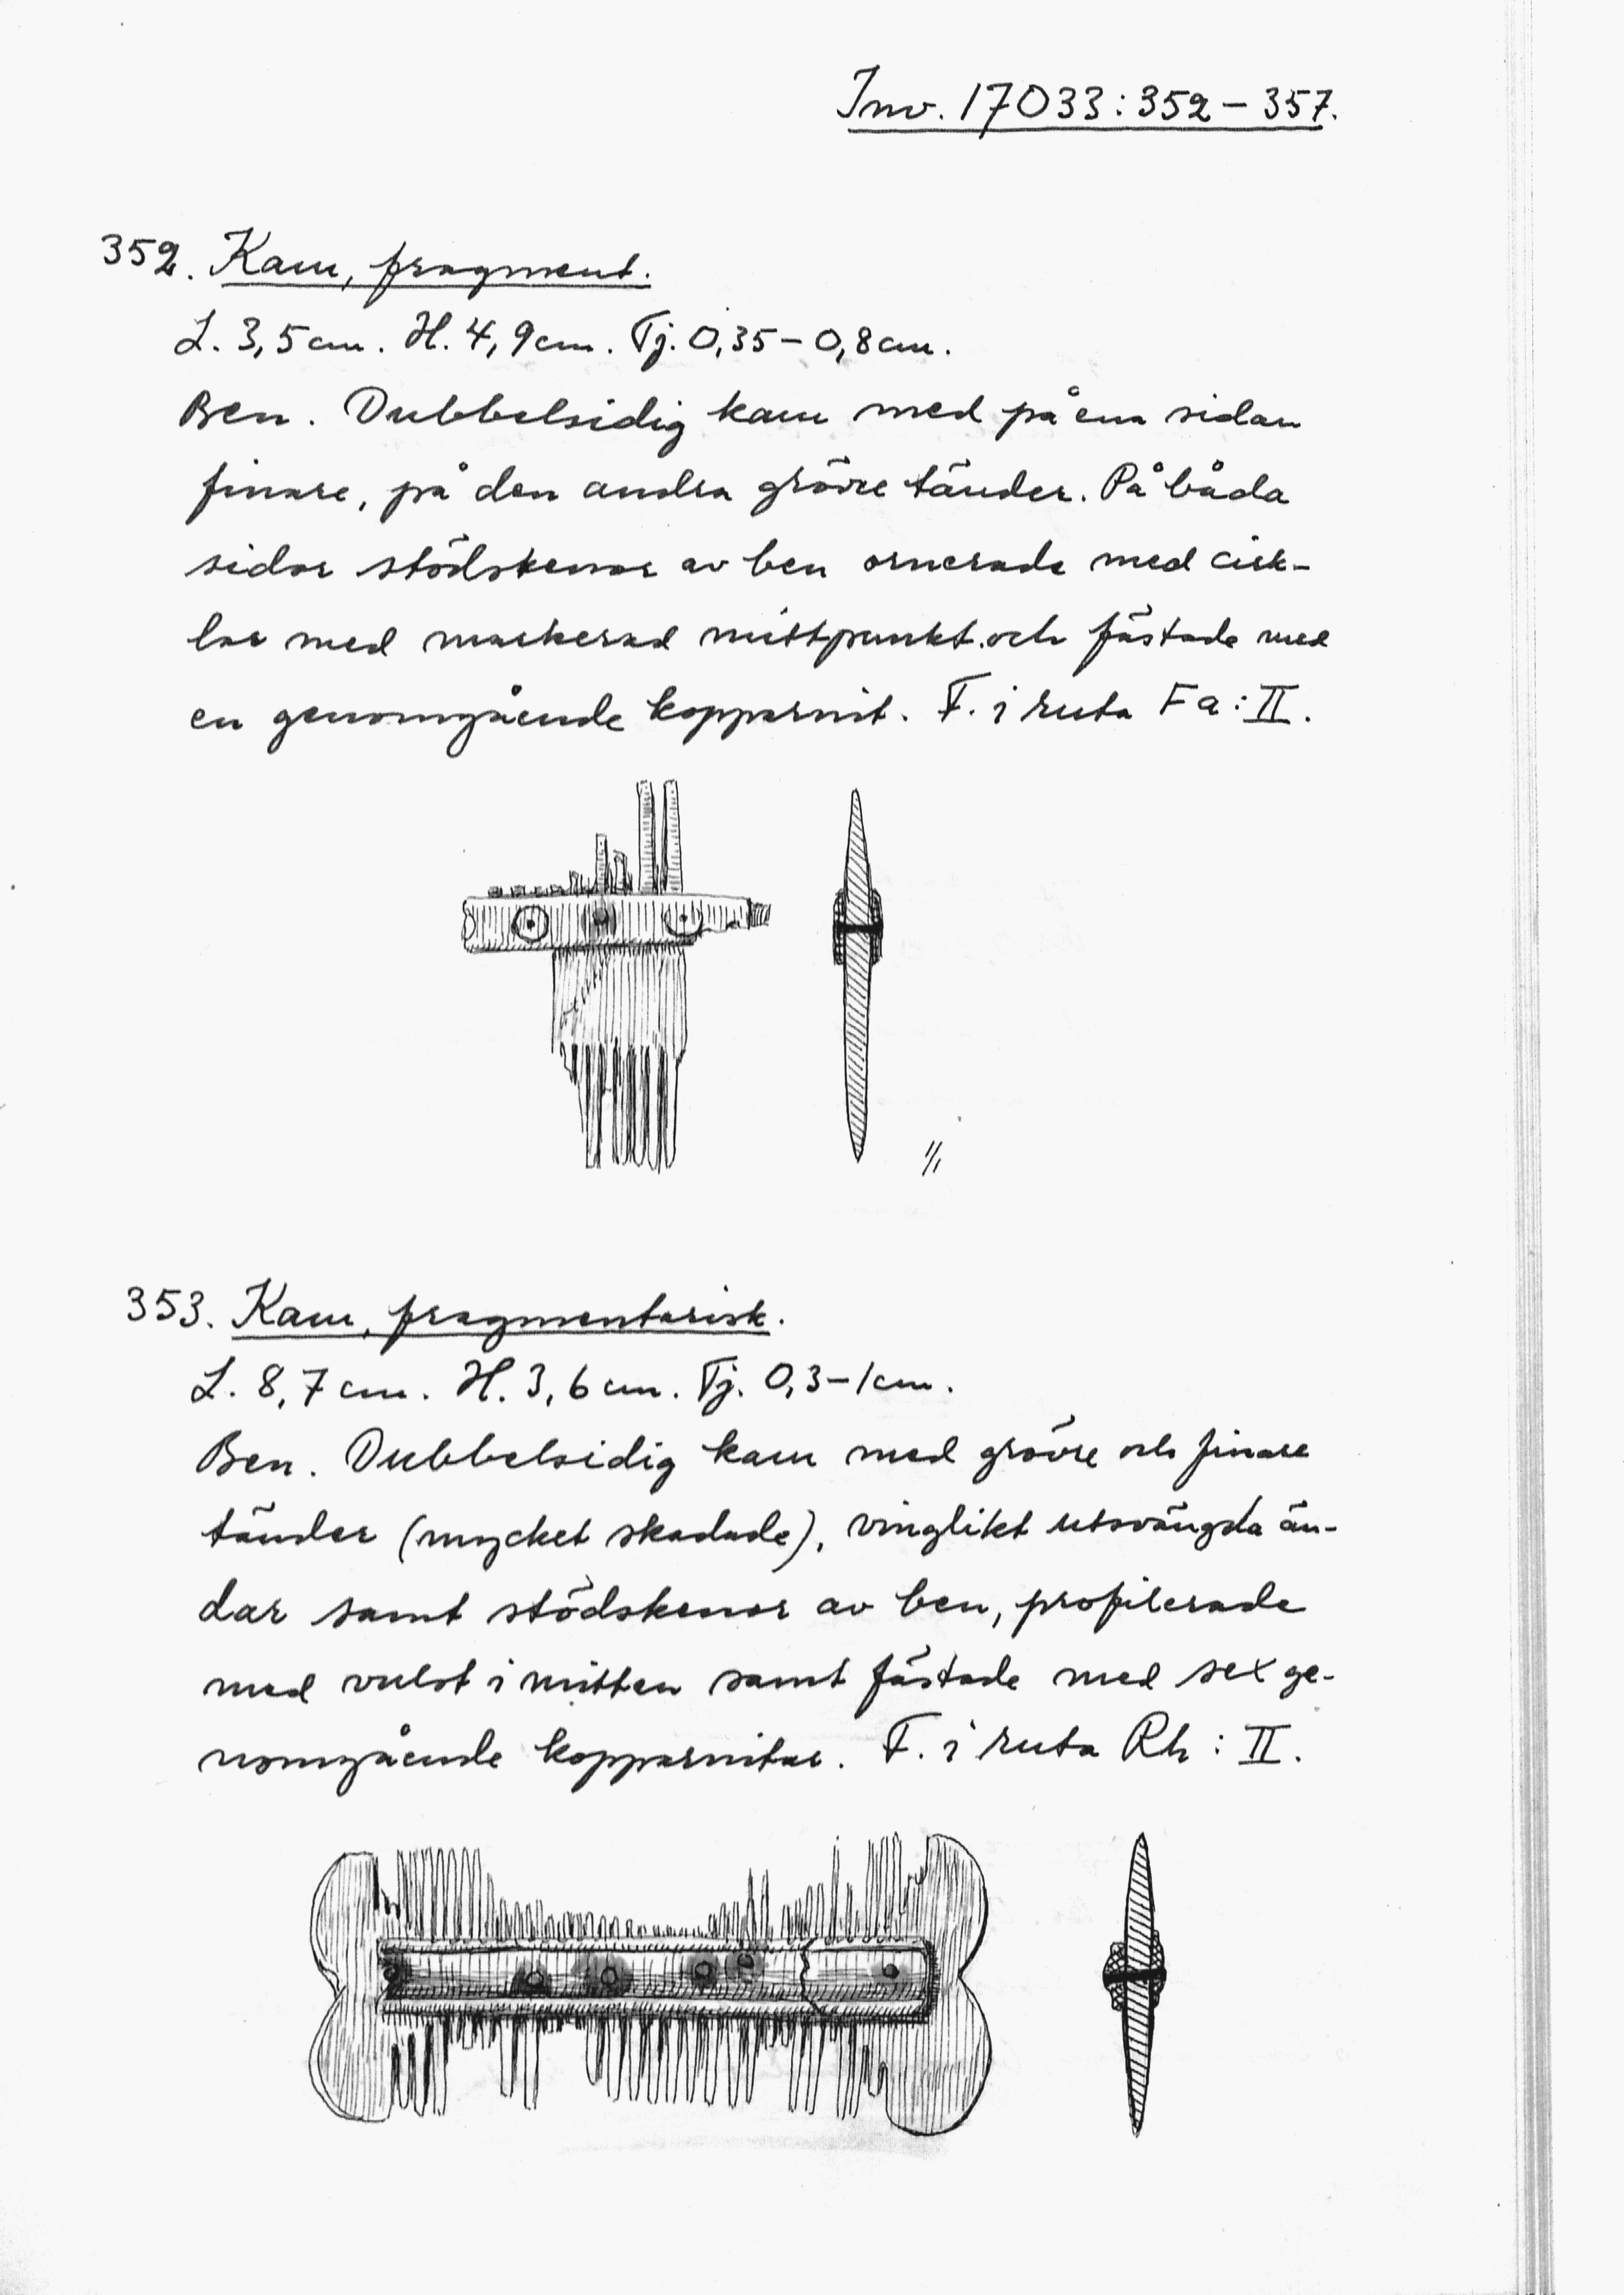 Inv. 17033:352–357.
352. Kam, fragment.
L. 3,5cm. H. 4,9cm. Tj. 0,35–0,8cm.
Ben. Dubbelsidig kam med på ena sidan
finare, på den andra grövre tänder. På båda
sidor stödskenor av ben ornerade med cirk-
lar med markerad mittpunkt och fästade med
en genomgående kopparnit. F. i ruta Fa:II.
1/1
353. Kam, fragmentarisk.
L. 8,7cm. H. 3,6cm. Tj. 0,3–1cm.
Ben. Dubbelsidig kam med grövre och finare
tänder (mycket skadade), vinglikt utsvängda än-
dar samt stödskenor av ben, profilerade
med vulst i mitten samt fästade med sex ge-
nomgående kopparnitar. F. i ruta Rh:II.